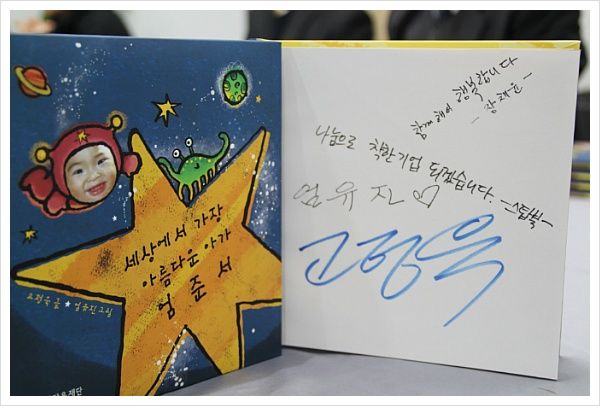 세상에서 가장
아름다운 아가
엄준서
고정욱 글 ★ 엄유진 그림
재단
함께 해서 행복합니다
- 장채윤 -
나눔으로 착한기업 되겠습니다.
-스탑북-
엄유진
고정욱